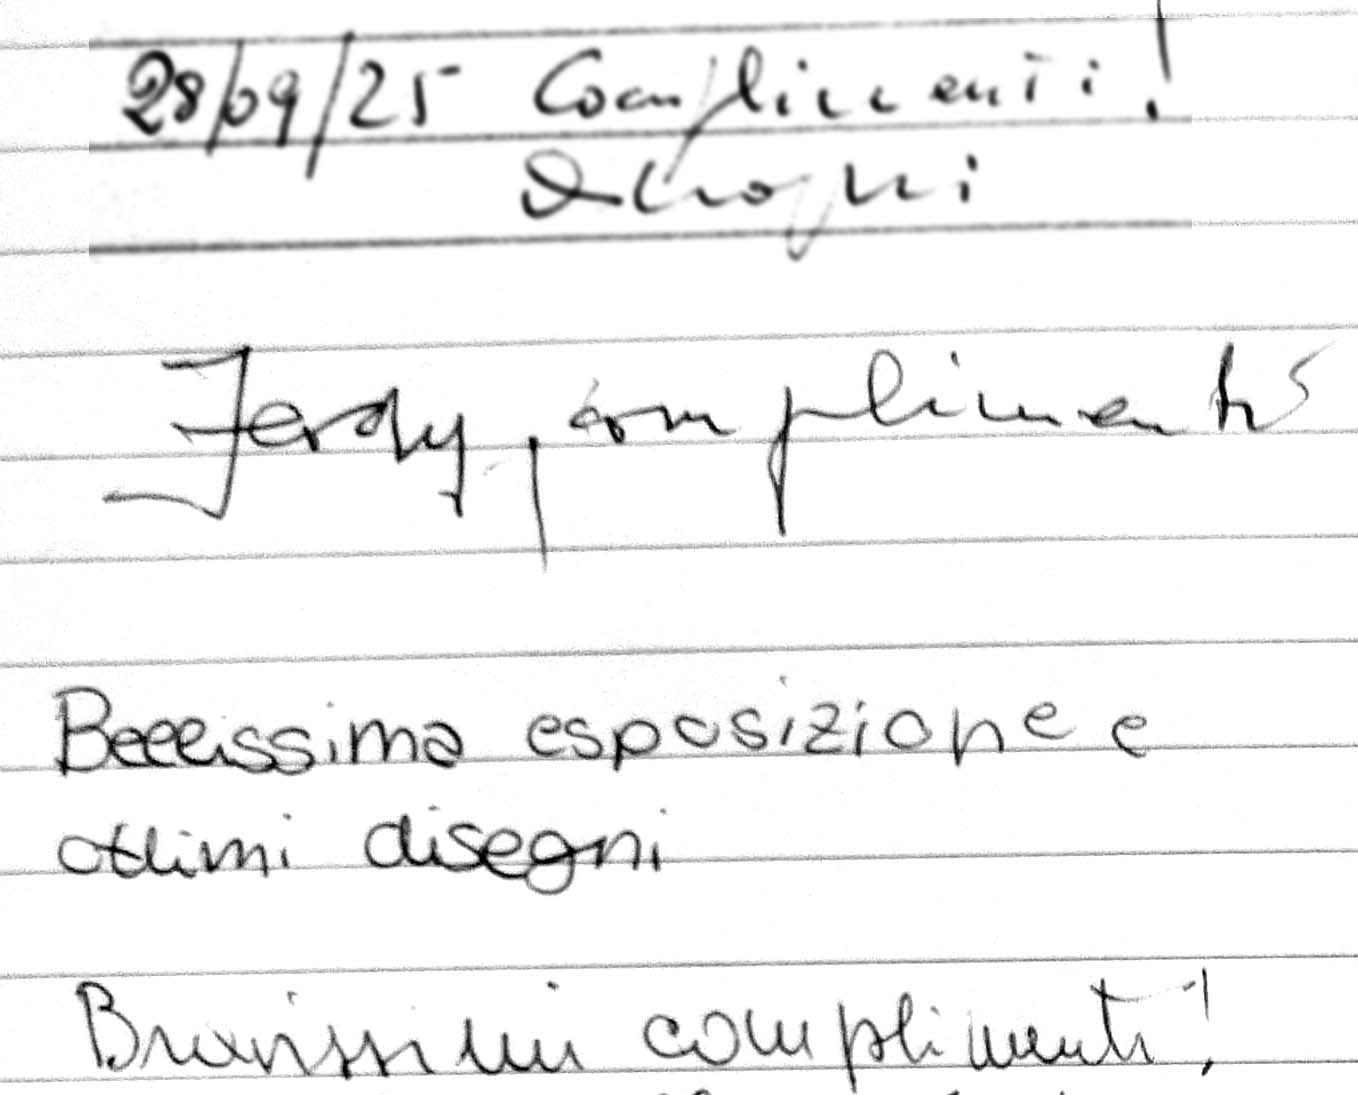 28/09/25 Complimenti!
Jerdy, complimenti
Bellissima esposizione e
ottimi disegni
Bravissimi complimenti!